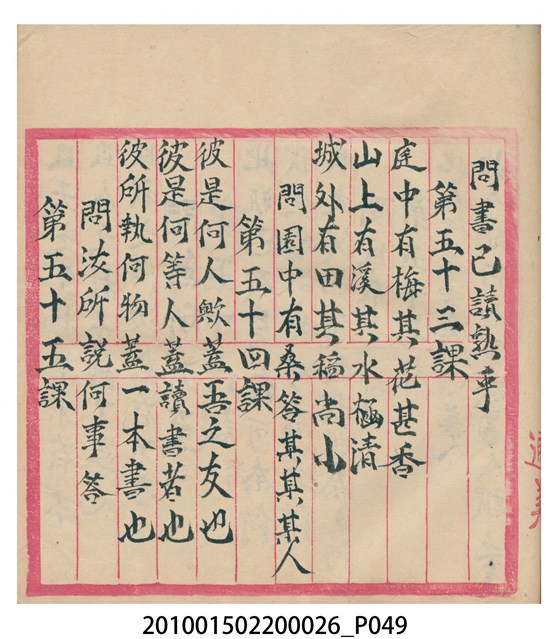 問書已讀熟乎
第五十三課
庭中有梅其花甚香
山上有溪其水極清
城外有田其稻尚小
問園中有桑答其其某人
第五十四課
彼是何人歟蓋吾之友也
彼是何等人蓋讀書者也
彼所執何物蓋一本書也
問汝所說何事答
第五十五課
201001502200026_P049